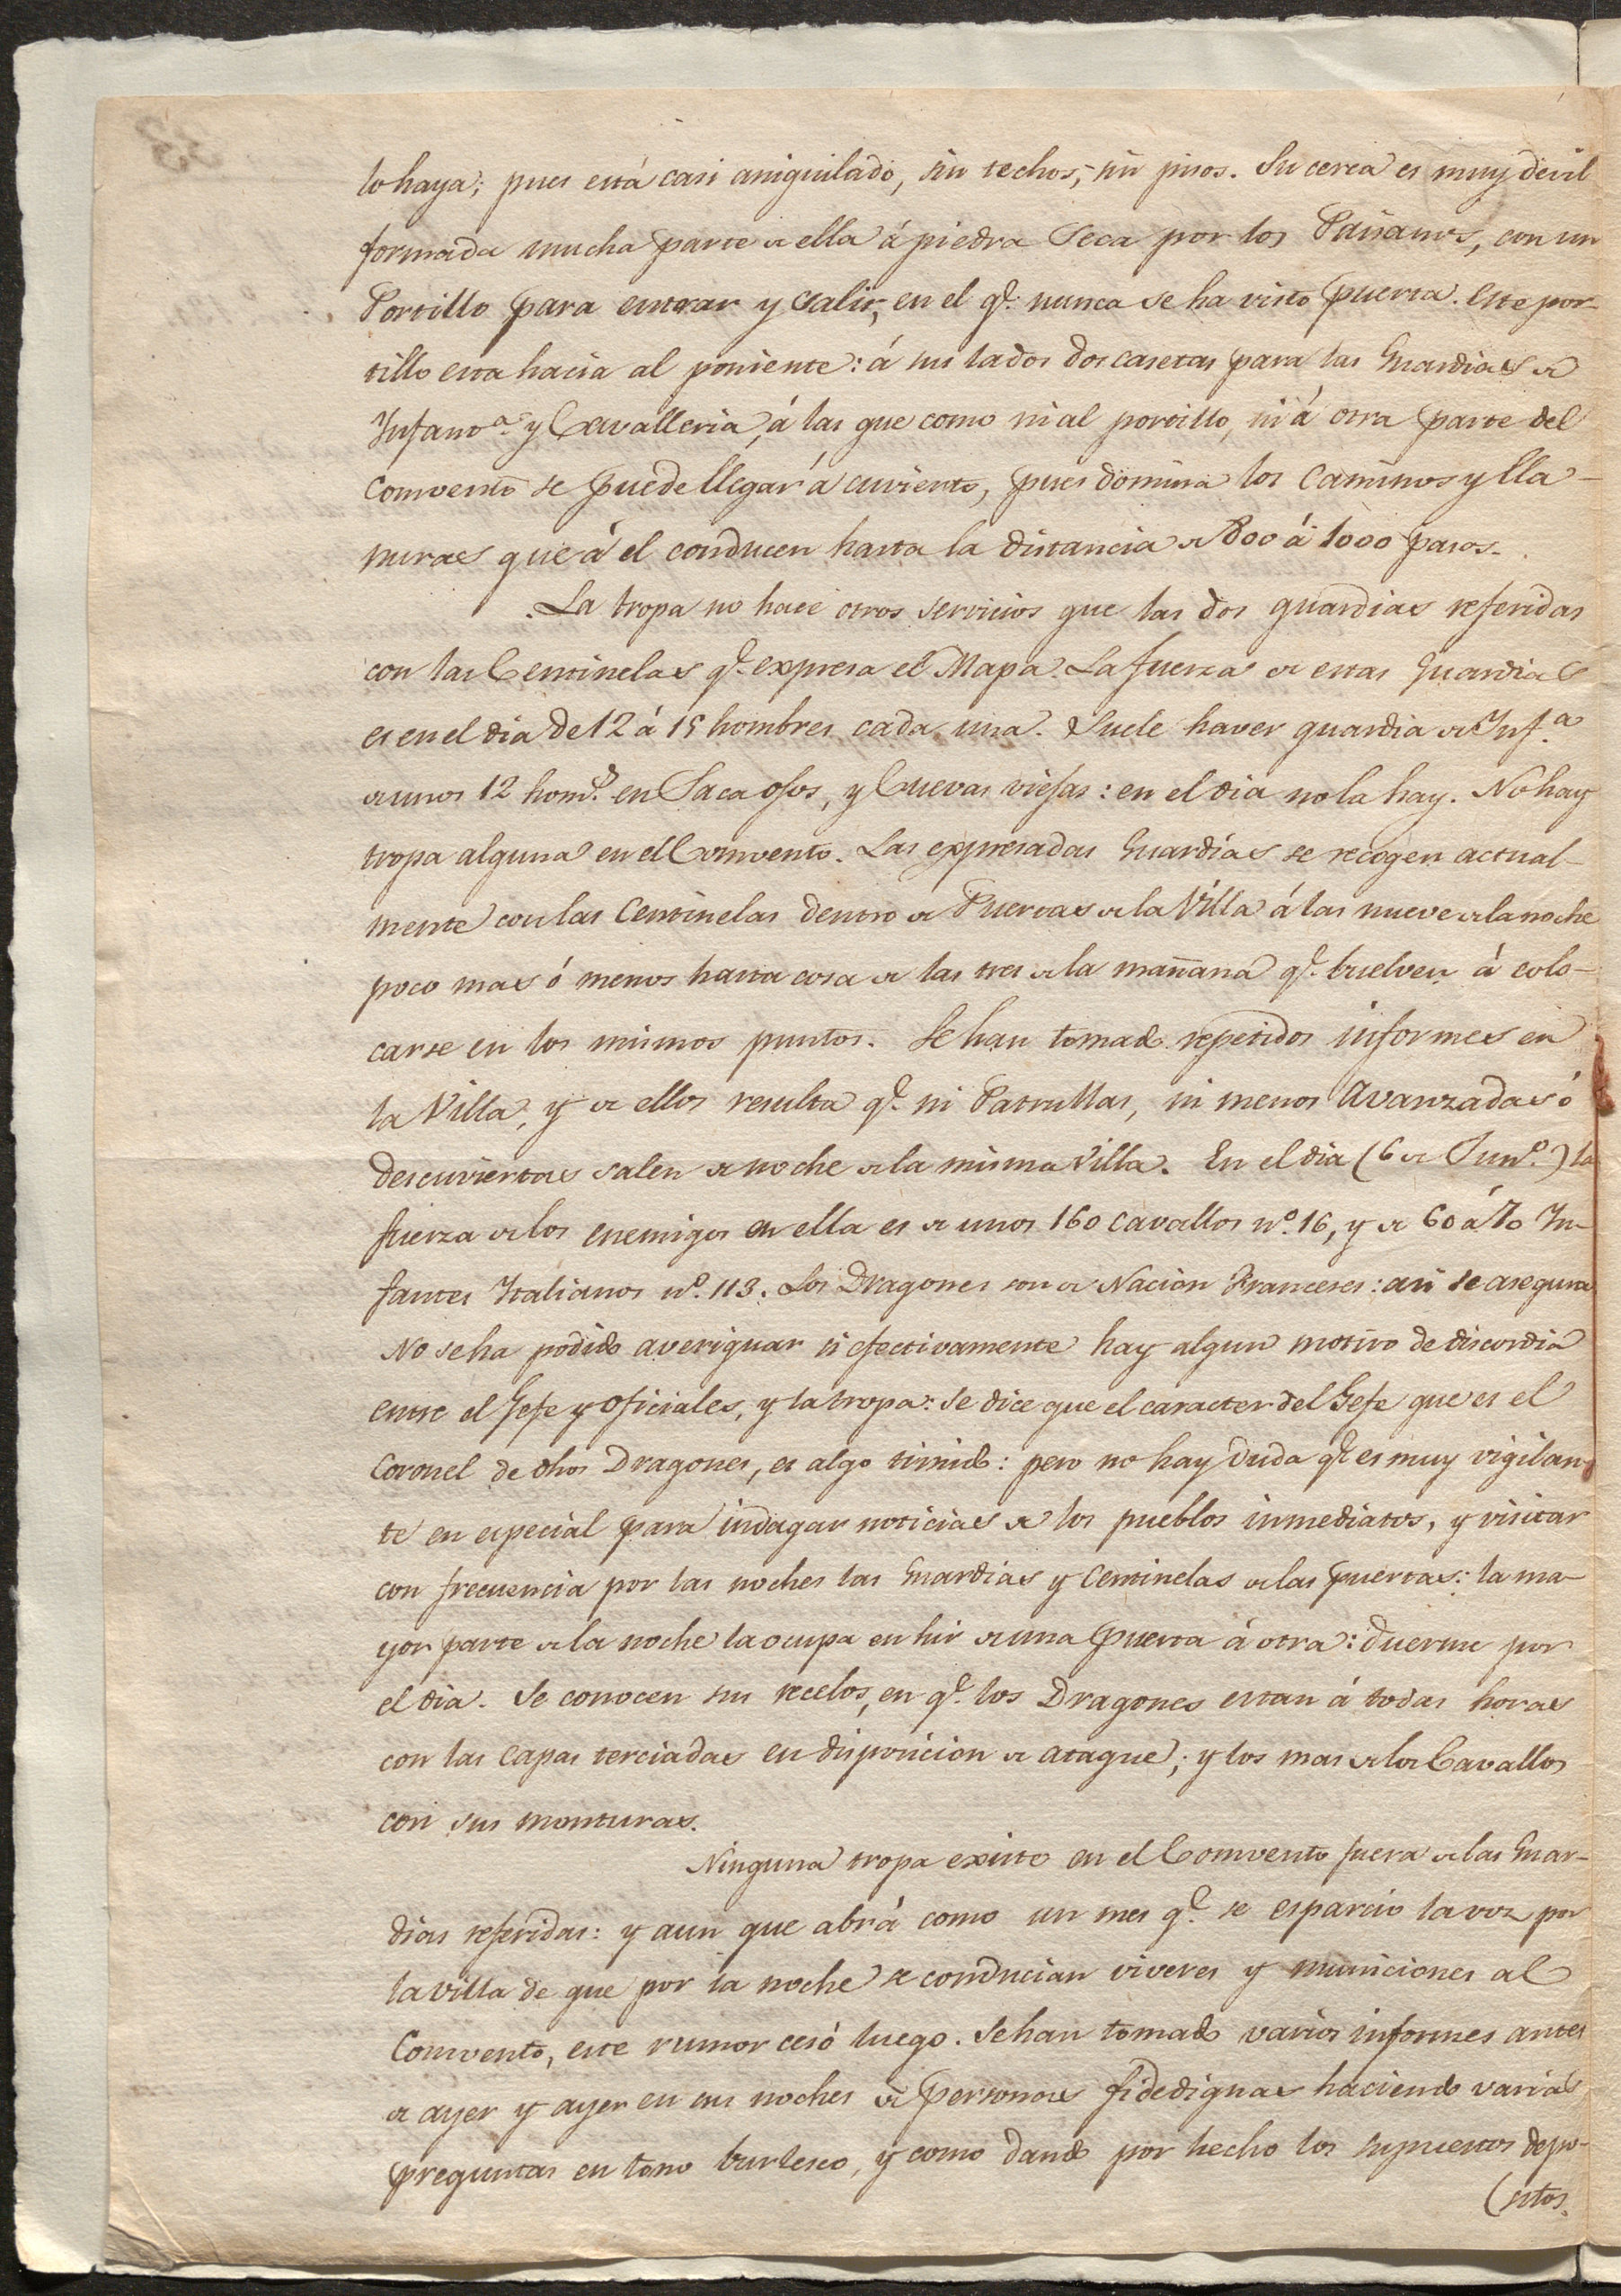 lo haya; pues está casi aniquilado, sin techos, ni pisos. Su cerca es muy devil
formada mucha parte de ella á piedra seca por los Paisanos, con un
Portillo para entrar y salir, en el q.e nunca se ha visto puerta. Este por-
tillo esta hacia al poniente: á sus lados dos casetas para las Guardias de
Infant.a y Cavalleria, á las que como ni al portillo, ni á otra parte del
Convento se puede llegar á cuvierto, pues domina los Caminos y lla-
nuras que á el conducen hasta la distancia de 800 á 1000 pasos.
La tropa no hace otros servicios que las dos guardias referidas
con las Centinelas q.e expresa el Mapa. La fuerza de estas Guardias
es en el dia de 12 á 15 hombres cada una. Suele haver guardia de Inf.a
de unos 12 hom.s en Saca Ojos, y Cuevas viejas: en el dia no la hay. No hay
tropa alguna en el Convento. Las expresadas Guardias se recogen actual-
mente con las Centinelas dentro de Puertas de la Villa á las nueve de la noche
poco mas ó menos hasta cosa de las tres de la mañana q.e buelven á colo-
carse en los mismos puntos. Se han tomado repetidos informes en
la Villa, y de ellos resulta q.e ni Patrullas, ni menos Avanzadas ó
descuviertas salen de noche de la misma Villa. En el dia (6 de Jun.o) la
fuerza de los enemigos en ella es de unos 160 cavallos n.o 16, y de 60 á 70 In-
fantes Italianos n.o 113. Los Dragones son de Nacion Franceses: asi se asegura
No se ha podido averiguar si efectivamente hay algun motivo de discordia
entre el Gefe y oficiales, y la tropa: se dice que el caracter del Gefe que es el
Coronel de dhos Dragones, es algo timido: pero no hay duda q.e es muy vigilan-
te en especial para indagar noticias de los pueblos inmediatos, y visitar
con frecuencia por las noches las Guardias y Centinelas de las puertas: la ma-
yor parte de la noche la ocupa en hir de una puerta á otra: duerme por
el dia. Se conocen sus recelos, en q.e los Dragones estan á todas horas
con las capas terciadas en disposicion de ataque; y los mas de los Cavallos
con sus monturas.
Ninguna tropa existe en el Convento fuera de las Guar-
dias referidas: y aun que abrá como un mes q.e se esparcio la voz por
la villa de que por la noche se conducian viveres y municiones al
Convento, este rumor cesó luego. Se han tomado varios informes antes
de ayer y ayer en sus noches de personas fidedignas haciendo varias
preguntas en tono burlesco, y como dando por hecho los supuestos depo-
(sitos.